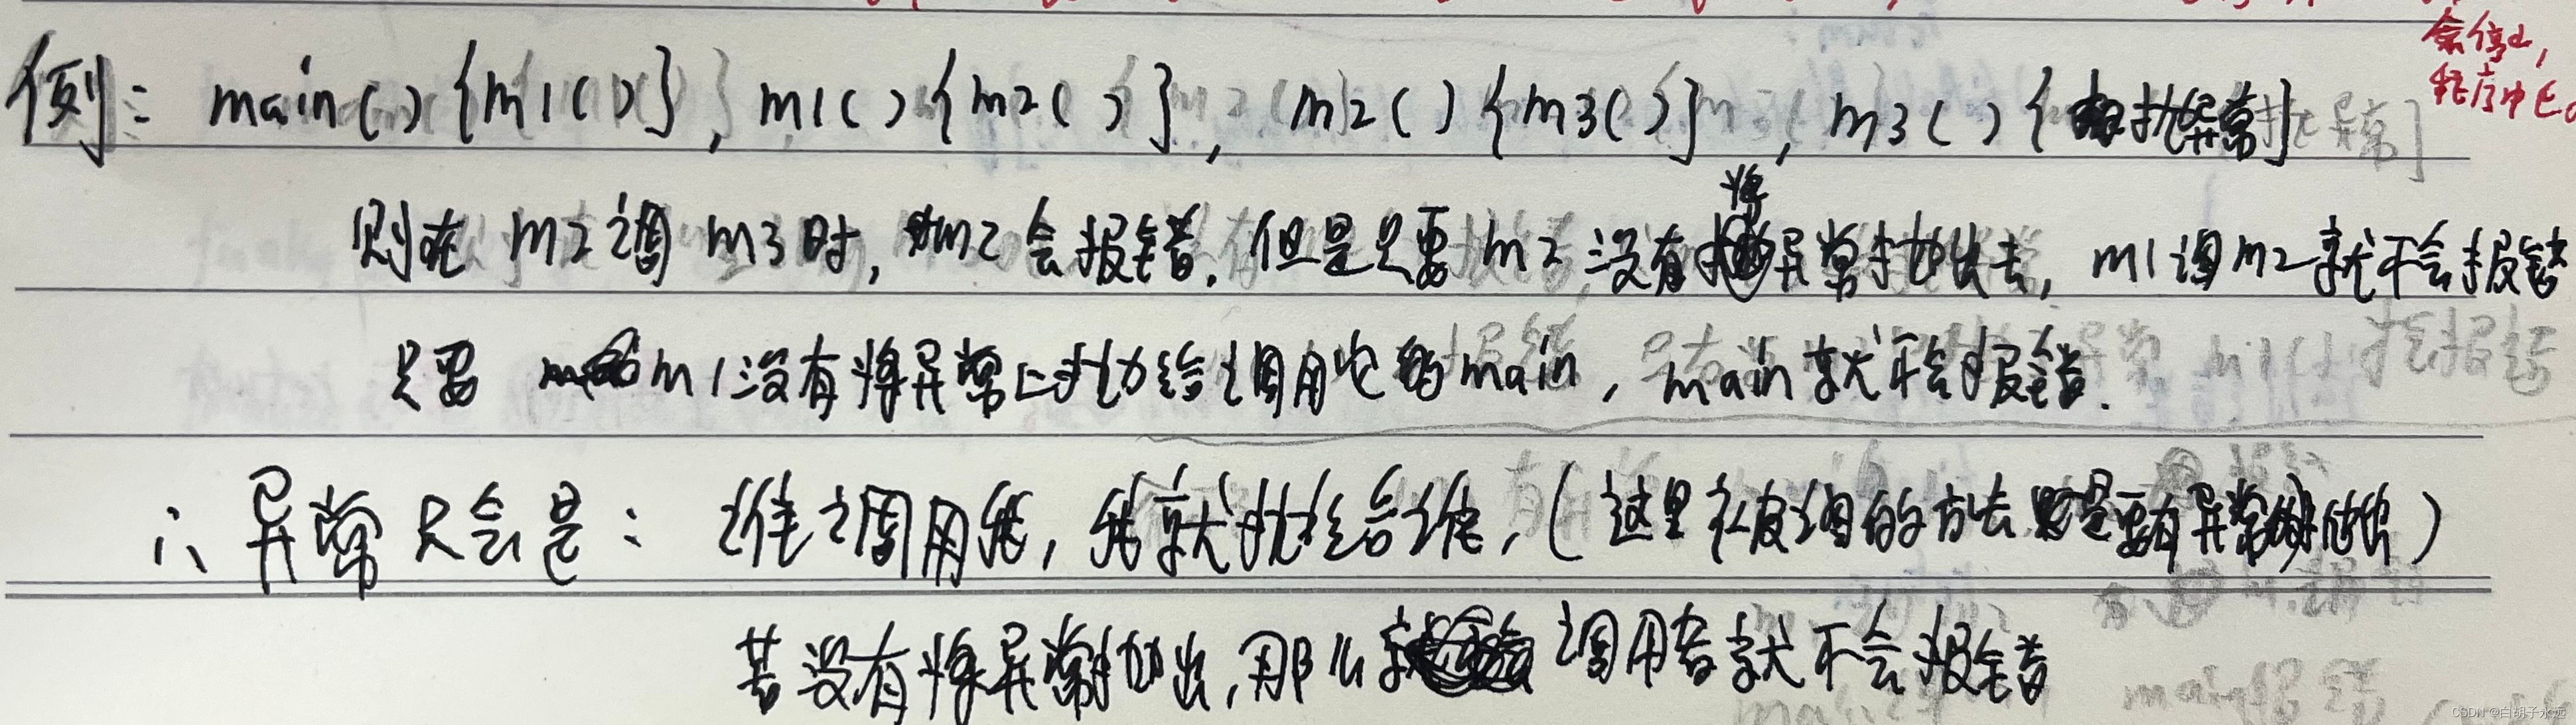 会停止,
程序中止。
例: main(){m1()}, m1(){m2()}, m2(){m3()}, m3(){抛异常}
则在 m2调 m3时, m2会报错. 但是只要 m2没有将异常抛出去, m1调m2就不会报错
只要 m1没有将异常上抛给调用它的main, main就不会报错.
∴ 异常只会是: 谁调用我, 我就抛给谁, (这里被调的方法是要有异常抛出)
若没有将异常抛出, 那么调用者就不会报错
CSDN @白胡子永远